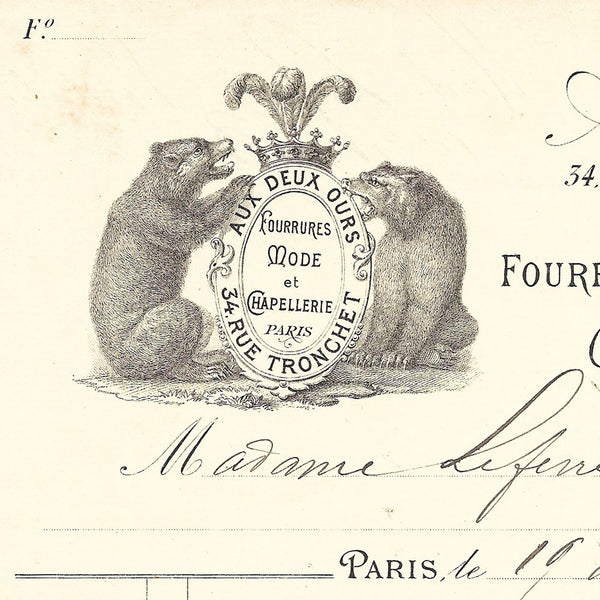 F.º
34.
AUX DEUX OURS
FOURRURES
MODE
et
CHAPELLERIE
PARIS
34. RUE TRONCHET
FOURR
Madame Lefevre
PARIS, le 19